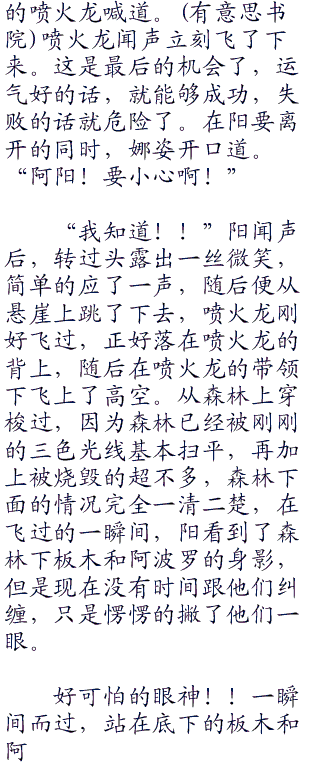 的喷火龙喊道。(有意思书
院)喷火龙闻声立刻飞了下
来。这是最后的机会了，运
气好的话，就能够成功，失
败的话就危险了。在阳要离
开的同时，娜姿开口道。
“阿阳！要小心啊！”
“我知道！！”阳闻声
后，转过头露出一丝微笑，
简单的应了一声，随后便从
悬崖上跳了下去，喷火龙刚
好飞过，正好落在喷火龙的
背上，随后在喷火龙的带领
下飞上了高空。从森林上穿
梭过，因为森林已经被刚刚
的三色光线基本扫平，再加
上被烧毁的超不多，森林下
面的情况完全一清二楚，在
飞过的一瞬间，阳看到了森
林下板木和阿波罗的身影，
但是现在没有时间跟他们纠
缠，只是愣愣的撇了他们一
眼。
好可怕的眼神！！一瞬
间而过，站在底下的板木和
阿